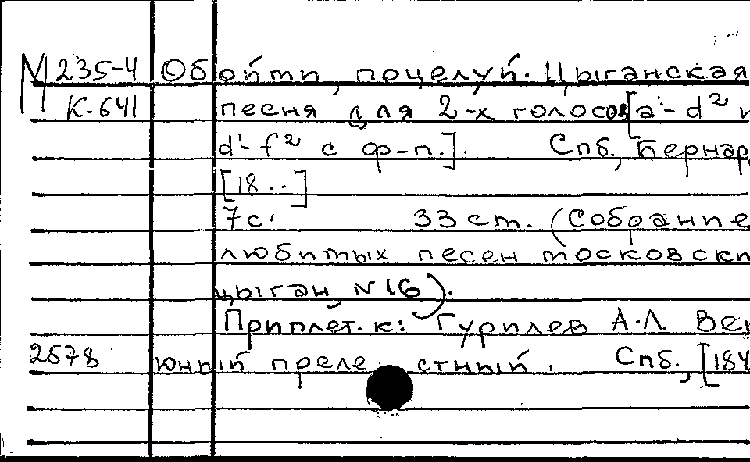 М 235-4 Обойми, поцелуй. Цыганская
К-641 песня для 2-х голосов [a'- d² и
d'- f² с ф-п.]. Спб., Бернар
[18..]
7с. 33 cm. (Собрание
любимых песен московски
цыган, N 16).
Приплет. к: Гурилев А.Л. Ве
2578 юный преле стный. Спб., [184